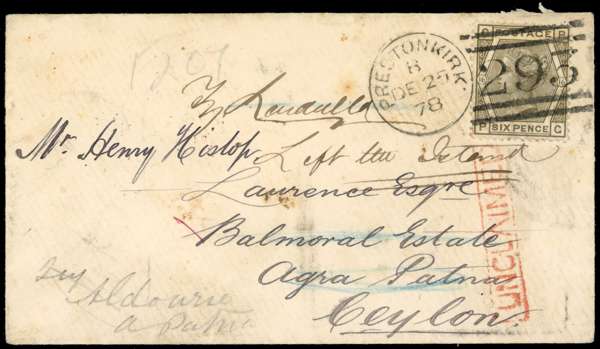 PRESTONKIRK.
B
DE 25
78
293
POSTAGE
SIX PENCE
P G
Left the Island
Mr. Henry Hislop
Laurence Esqre
Balmoral Estate
Agra Patna
Ceylon
UNCLAIMED
Try
Aldourie
a Patna